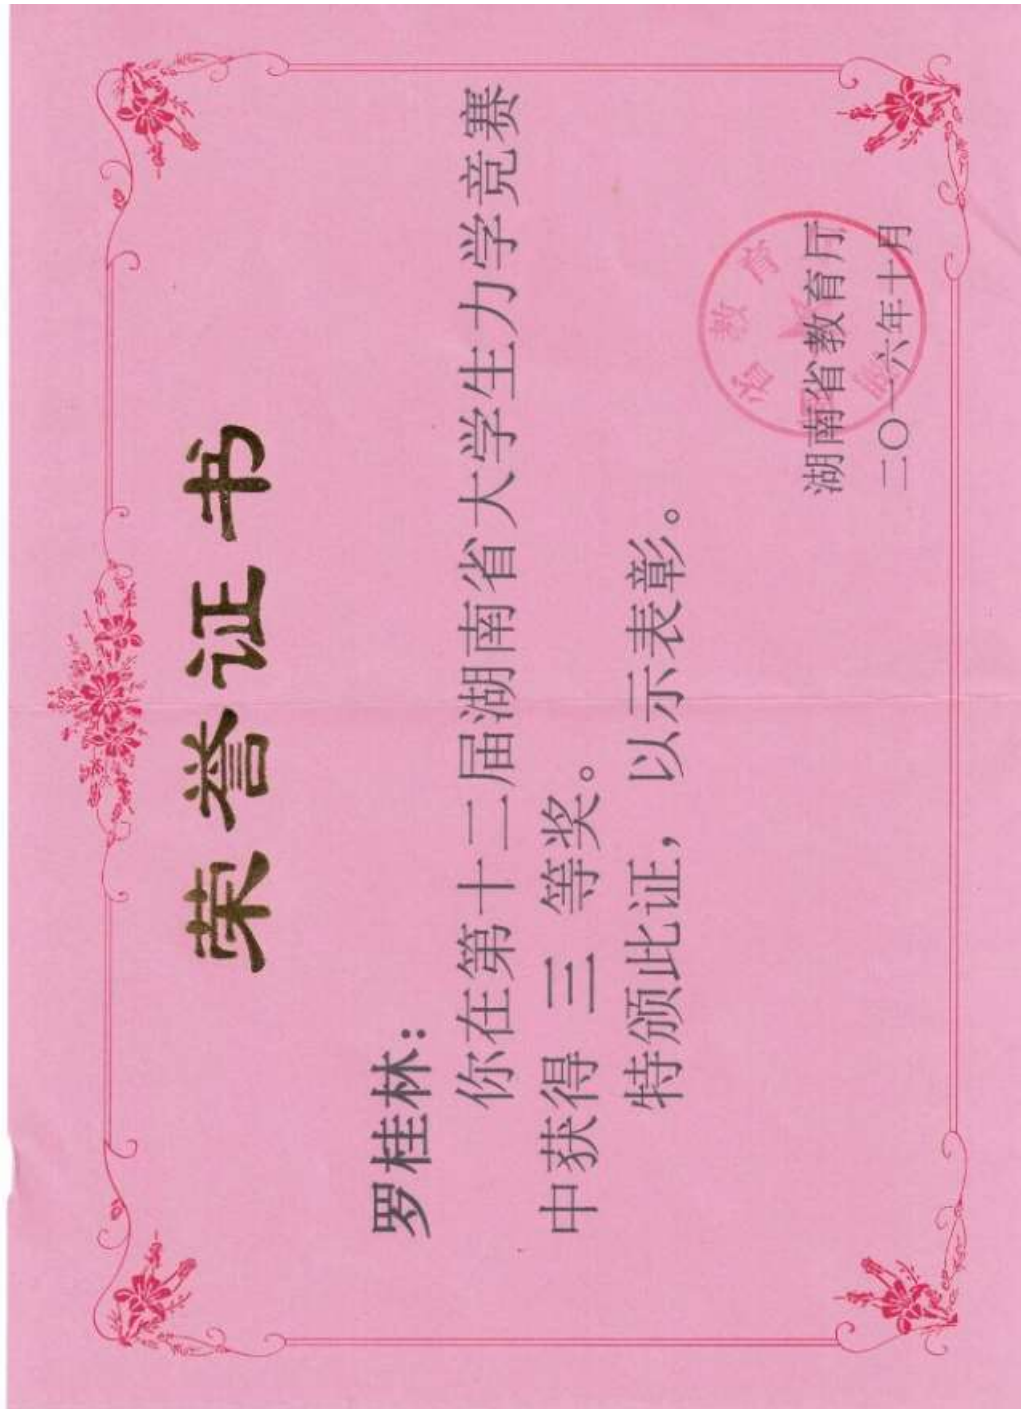 荣誉证书
罗桂林：
你在第十二届湖南省大学生力学竞赛
中获得 三 等奖。
特颁此证，以示表彰。
湖南省教育厅
二〇一六年十月